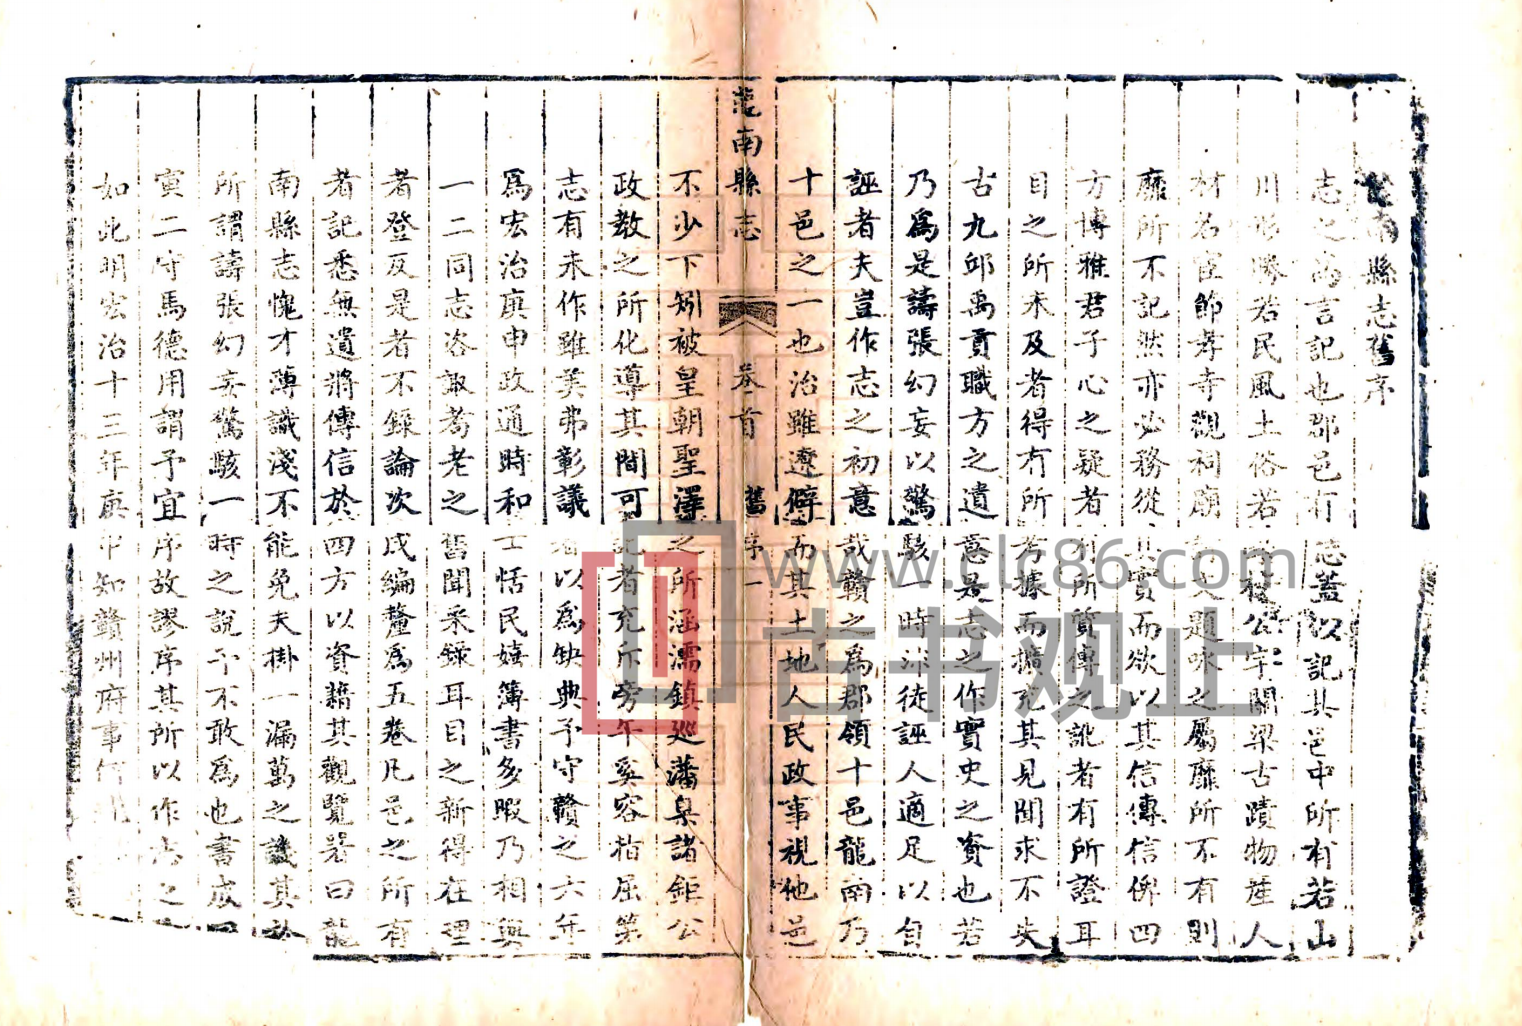 南縣志舊序
志之爲言記也郡邑有志蓋以記其邑中所有若山
川形勝若民風土俗若公宇關梁古蹟物產人
材名宦節孝寺觀祠廟題咏之屬靡所不有則
靡所不記然亦必務從實而欲以其信傳信俾四
方博雅君子心之疑者所質傳之訛者有所證耳
目之所未及者得有所考據而擴充其見聞求不失
古九邱禹貢職方之遺意是志之作實史之資也若
乃爲是譸張幻妄以驚駭一時徒誣人適足以自
誣者夫豈作志之初意哉贛之爲郡領十邑龍南乃
十邑之一也治雖遼僻而其土地人民政事視他邑
龍南縣志 卷首 舊序一
不少下矧被皇朝聖澤之所涵濡鎮廵藩臬諸鉅公
政教之所化導其間可者充斥旁午奚容枯屈第
志有未作雖美弗彰議以爲缺典予守贛之六年
爲宏治庚申政通時和士恬民嬉簿書多暇乃相與
一二同志咨諏耆老之舊聞采錄耳目之新得在理
者登反是者不錄論次成編釐爲五卷凡邑之所有
者記悉無遺將傳信於四方以資籍其觀覽畧曰龍
南縣志愧才薄識淺不能免夫掛一漏萬之譏其於
所謂譸張幻妄驚駭一時之說予不敢爲也書成
寅二守馬德用謂予宜序故謬序其所以作志之
如此明宏治十三年庚申知贛州府事何
www.clc86.com
古书观止